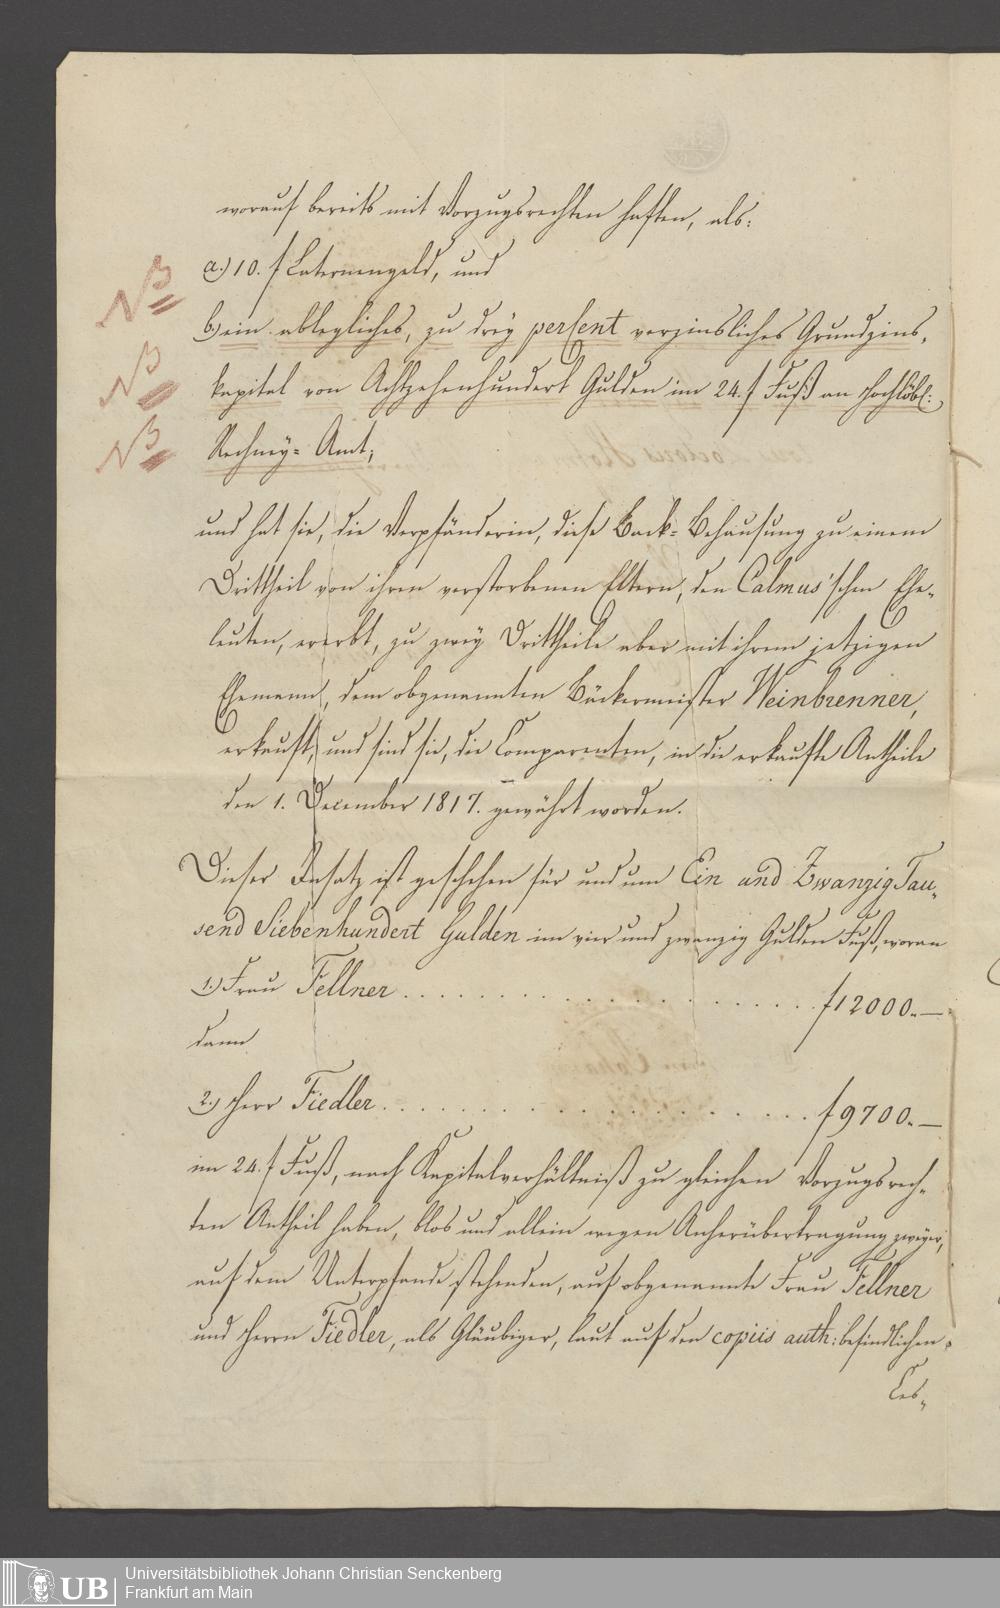 worauf bereits mit Vorzugsrechten haften, als:
a.) 10. f Laternengeld, und
NB
b.) ein ablegliches, zu drey perCent verzinsliches Grundzins-
NB
kapital von Achtzehenhundert Gulden im 24. f Fuß an Hochlöbl:
NB
Rechney-Amt;
und hat sie, die Verpfänderin, diese Back-Behausung zu einem
Drittheil von ihren verstorbenen Eltern, den Calmus'schen Ehe-
leuten, ererbt, zu zwey Drittheile aber mit ihrem jetzigen
Ehemann, dem obgenannten Bäckermeister Weinbrenner,
erkauft, und sind sie, die Comparenten, in die erkaufte Antheile
den 1. December 1817. gewährt worden.
Dieser Insatz ist geschehen für und um Ein und Zwanzig Tau-
send Siebenhundert Gulden im vier und zwanzig Gulden Fuß, woran
1.) Frau Fellner . . . . . . . . . . . . . . . . . . . f 12000.—
dann
2.) Herr Fiedler . . . . . . . . . . . . . . . . . . . f 9700.—
im 24. f Fuß, nach Kapitalverhältniß zu gleichen Vorzugsrech-
ten Antheil haben, blos und allein wegen Anherübertragung zweyer,
auf dem Unterpfande stehenden, auf obgenannte Frau Fellner
und Herrn Fiedler, als Gläubiger, laut auf den copiis auth: befindlichen
Ces-
UB
Universitätsbibliothek Johann Christian Senckenberg
Frankfurt am Main